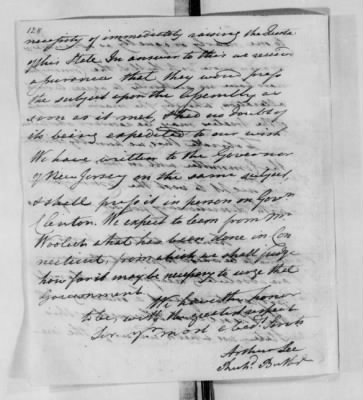 128
necessity of immediately raising the Quota
of his State. In answer to this we receiv'd
assurance that they would press
the subject upon the Assembly as
soon as it met, & had no doubt of
its being expedited to our wish
We have written to the Governor
of New Jersey on the same subject,
& shall press it in person on Govr
Clinton. We expect to learn from Mr
Woolcot what has been done in Con
necticut, from which we shall judge
how far it may be necessary to urge that
Government.
We have the honor
to be, with the greatest respect
Sir yr most obedt Servts
Arthur Lee
Richd Butler